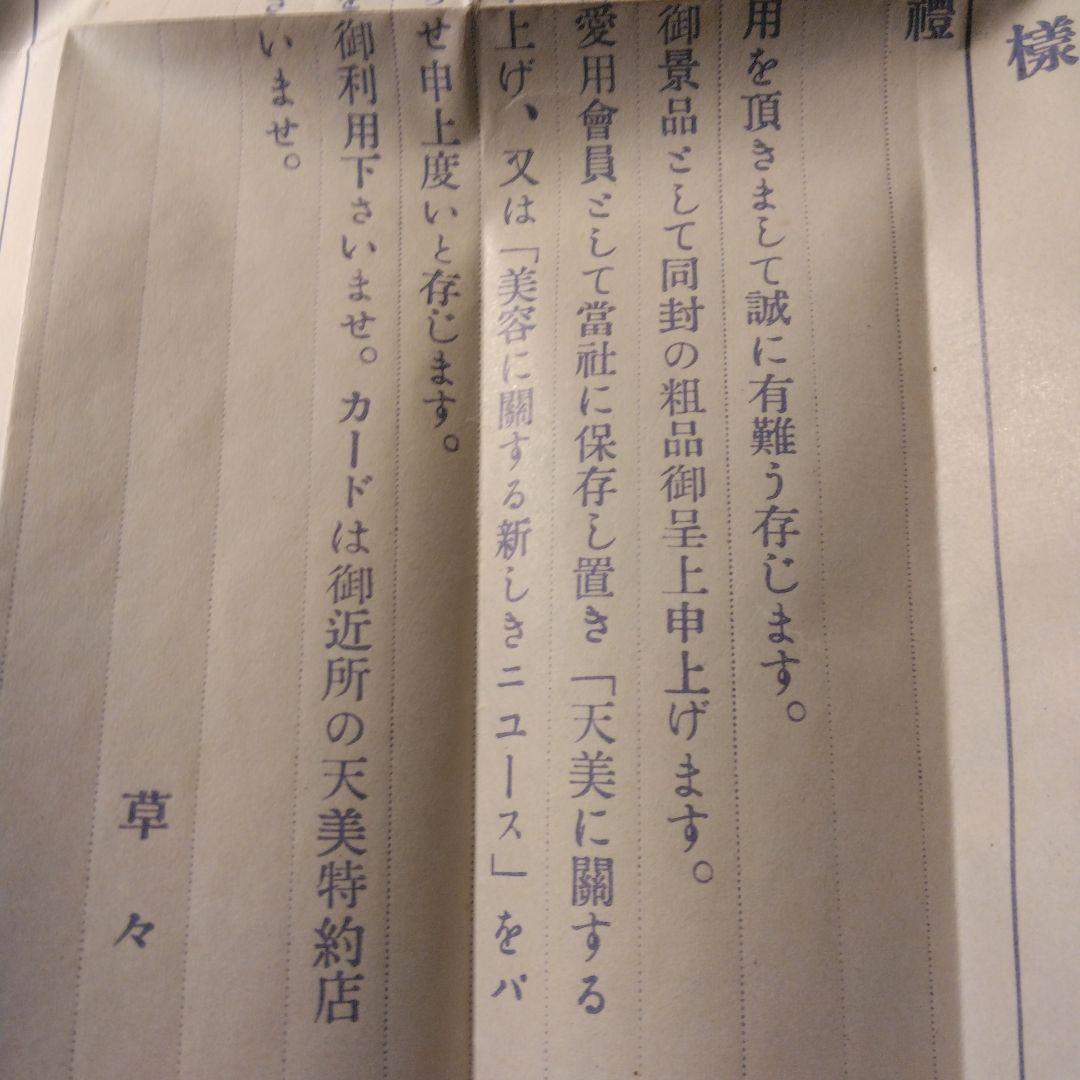 様
禮
用を頂きまして誠に有難う存じます。
御景品として同封の粗品御呈上申上げます。
愛用會員として當社に保存し置き「天美に關する
上げ、又は「美容に關する新しきニユース」をパ
せ申上度いと存じます。
御利用下さいませ。カードは御近所の天美特約店
いませ。
草々